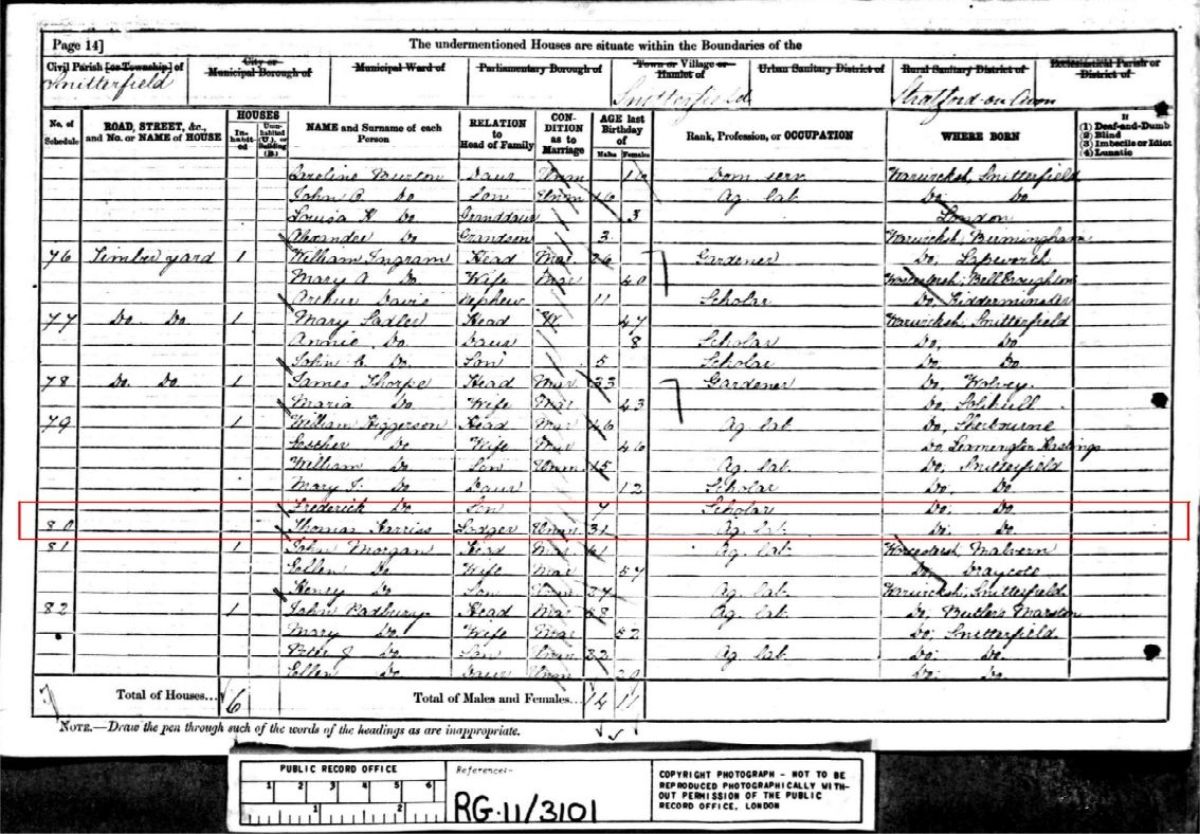 Page 14] The undermentioned Houses are situate within the Boundaries of the
Civil Parish [or Township] of City or Municipal Borough of Municipal Ward of Parliamentary Borough of Town or Village or Hamlet of Urban Sanitary District of Rural Sanitary District of Ecclesiastical Parish or District of
Snitterfield Snitterfield Stratford-on-Avon
No. of Schedule ROAD, STREET, &c., and No. or NAME of HOUSE HOUSES In-habit-ed Unin-habited (U.), or Building (B.) NAME and Surname of each Person RELATION to Head of Family CON-DITION as to Marriage AGE last Birthday of Males Females Rank, Profession, or OCCUPATION WHERE BORN If (1) Deaf-and-Dumb (2) Blind (3) Imbecile or Idiot (4) Lunatic
Caroline Daur Unm 16 Dom serv Warwicksh, Snitterfield
John Do Son Unm 16 Ag. lab Do, Do
Louisa Do Granddaur 3 London
Alexander Do Grandson 3 Warwicksh, Birmingham
76 Timber yard 1 William Ingram Head Mar Gardener Do, Lapworth
Mary A Do Wife Mar 40 Bell Broughton
Arthur Davis Nephew 11 Scholar Do, Kidderminster
77 Do Do 1 Mary Sadler Head W 47 Warwicksh, Snitterfield
Annie Do Daur 8 Scholar Do, Do
John Do Son 5 Scholar Do, Do
78 Do Do 1 James Thorpe Head Mar 33 Gardener Do, Wolvey
Maria Do Wife Mar 43 Do, Solihull
79 1 William Higgerson Head Mar 46 Ag. lab Do, Sherbourne
Esther Do Wife Mar 46 Do, Leamington Hastings
William Do Son Unm 15 Ag. lab Do, Snitterfield
Mary Do Daur 12 Scholar Do, Do
Frederick Do Son Scholar Do, Do
80 Thomas Harriss Lodger Unm 31 Ag. lab Do, Do
81 1 John Morgan Head Mar 61 Ag. lab Malvern
Ellen Do Wife Mar 57 Do, Draycote
Henry Do Son Unm 27 Ag. lab Warwicksh, Snitterfield
82 1 John Padbury Head Mar 58 Ag. lab Do, Butlers Marston
Mary Do Wife Mar 52 Do, Snitterfield
J Do Son Unm 22 Ag. lab Do, Do
Ellen Do Daur Unm 20 Do, Do
7 Total of Houses... 6 Total of Males and Females... 14 11
NOTE.—Draw the pen through such of the words of the headings as are inappropriate.
PUBLIC RECORD OFFICE
1 2 3 4 5 6
1 2
Reference:-
RG.11/3101
COPYRIGHT PHOTOGRAPH - NOT TO BE
REPRODUCED PHOTOGRAPHICALLY WITH-
OUT PERMISSION OF THE PUBLIC
RECORD OFFICE, LONDON